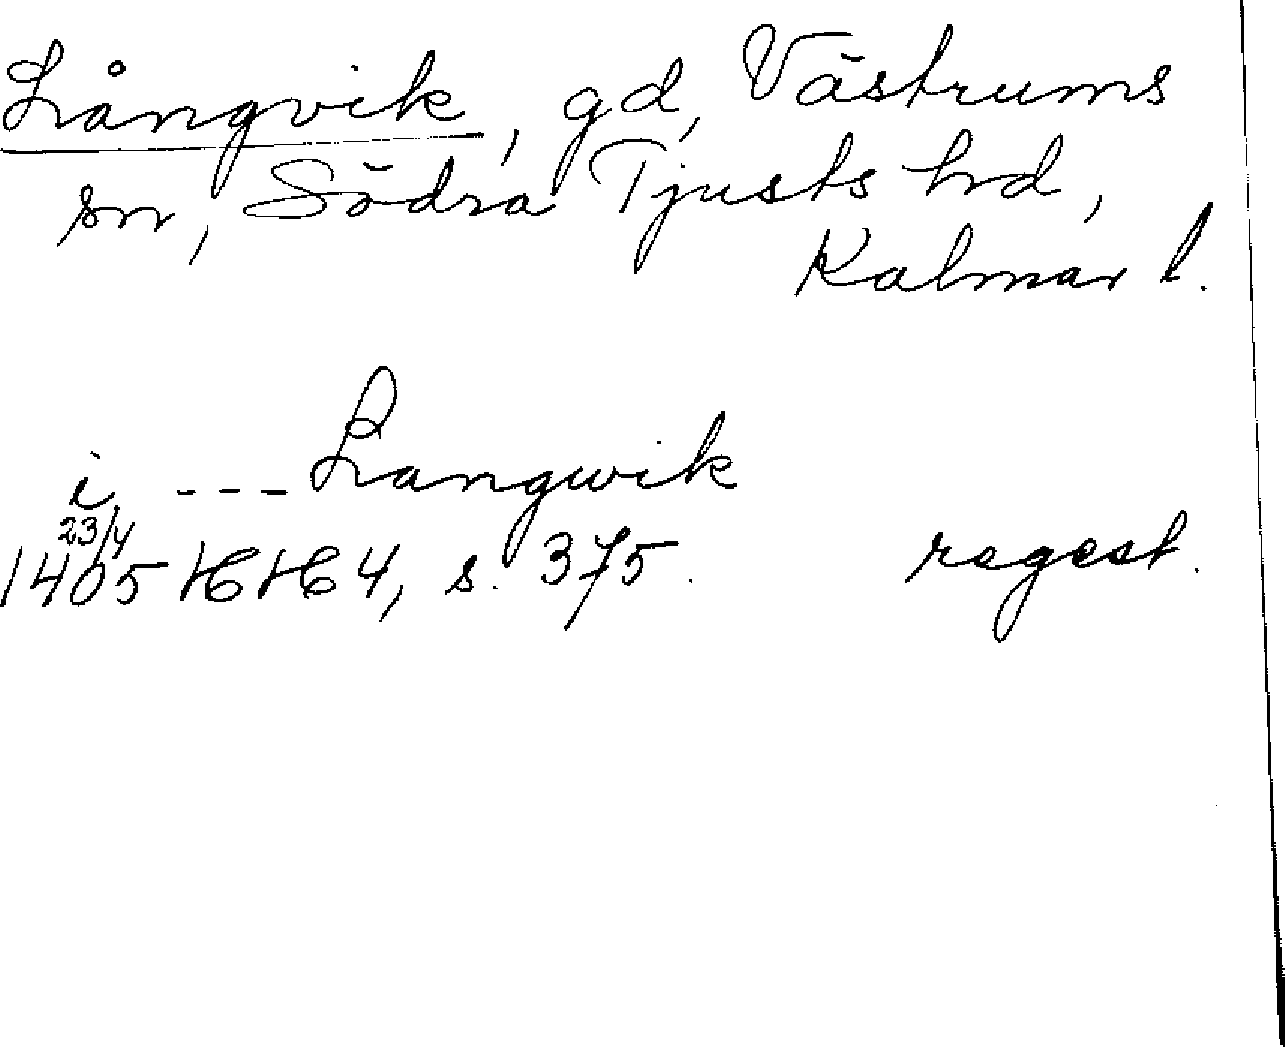 Långvik, gd, Västrums
sn, Södra Tjusts hd,
Kalmar l.
i --- Langwik
23/4
1405 HH 4, s. 375. regest.